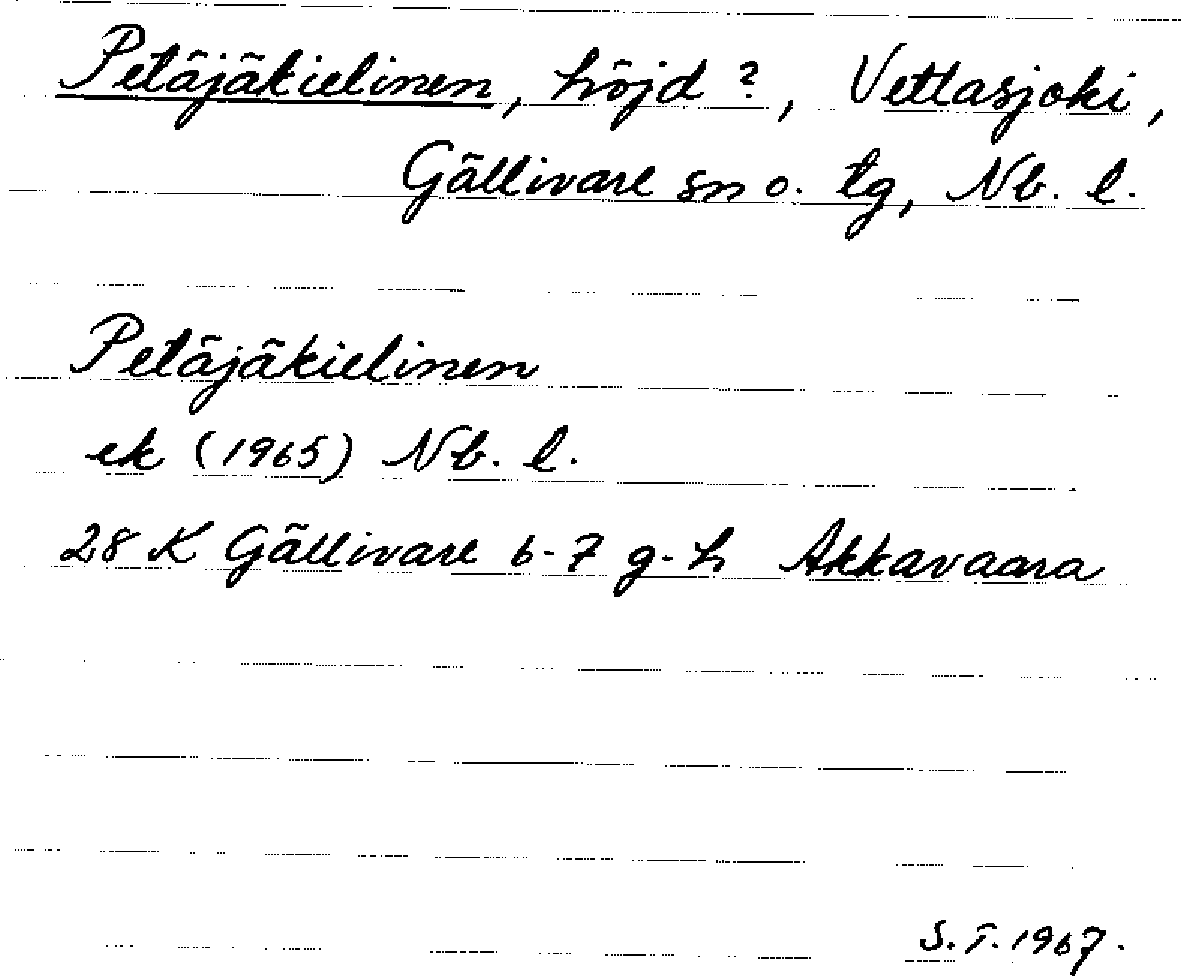 Petäjäkielinen, höjd ?, Vettasjoki,
Gällivare sn o. tg, Nb. l.
Petäjäkielinen
ek (1965) Nb. l.
28 K Gällivare 6-7 g-h Akkavaara
S. T. 1967.